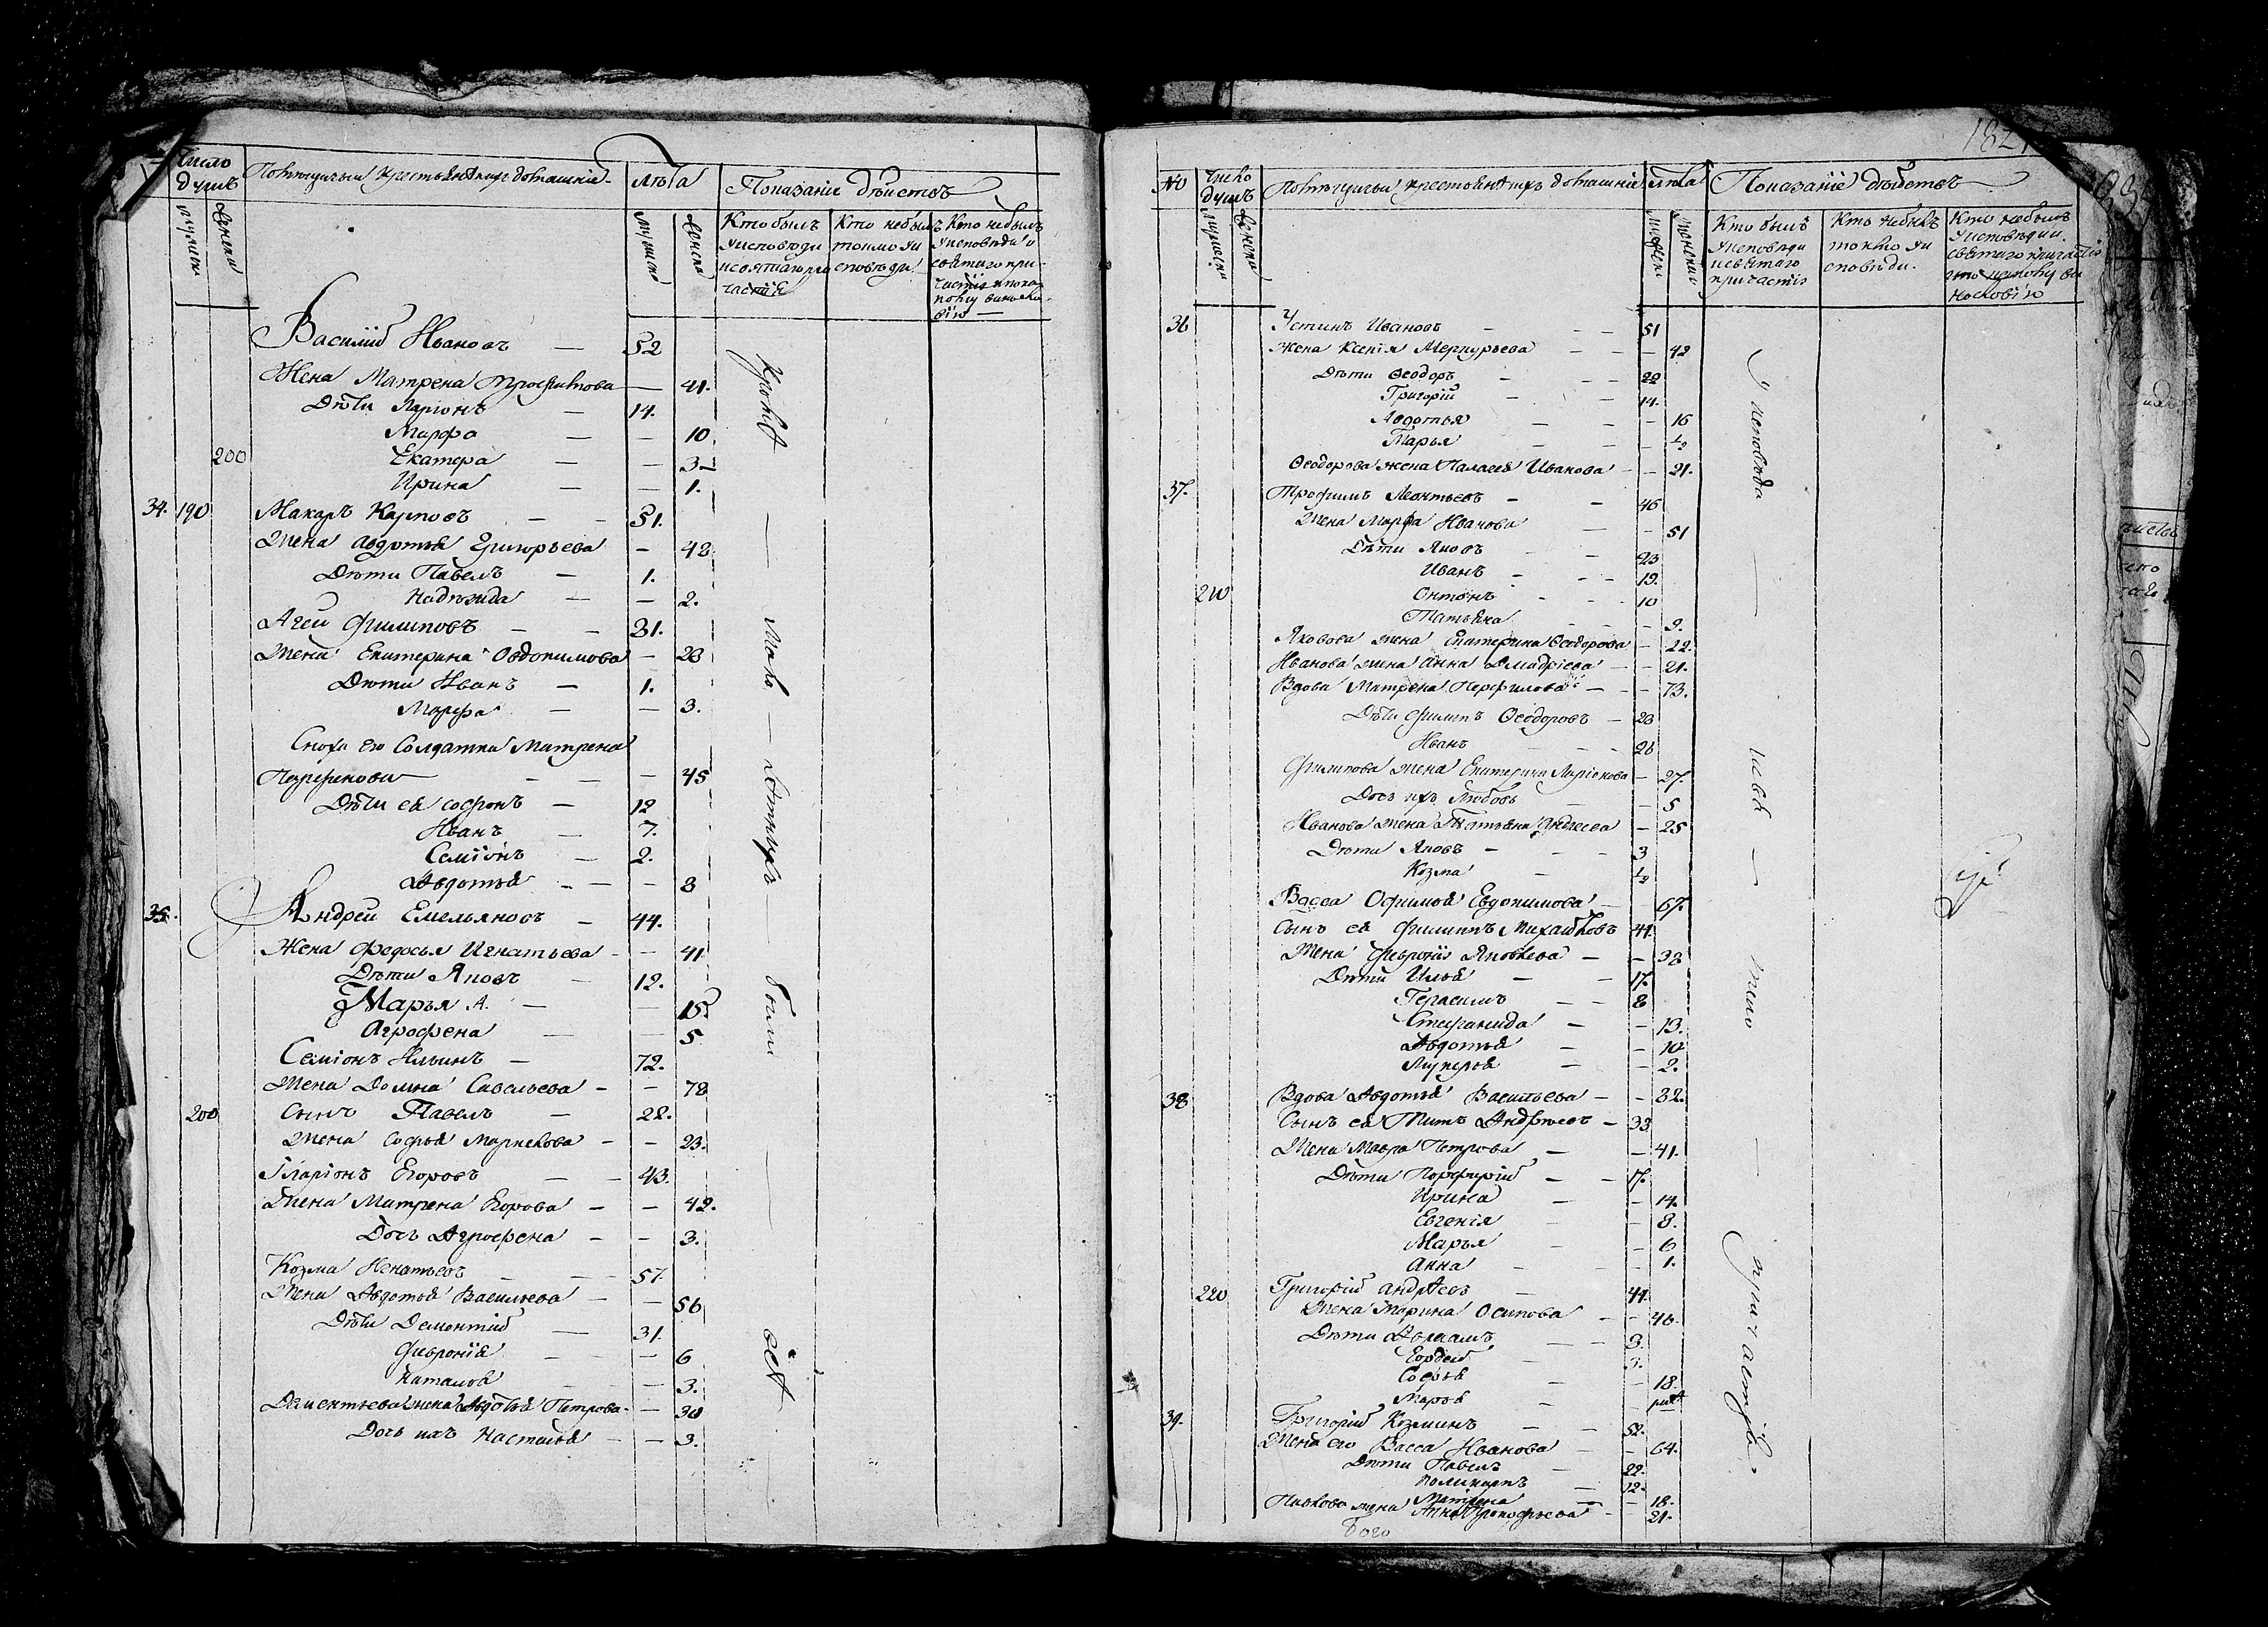 Число душъ
Помѣщичьи крестьяне и ихъ домашнія
Лѣта
Показаніе дѣйствъ
мужеска
женска
мужеска
женска
Кто былъ у исповѣди и святаго причастія
Кто не былъ токмо у исповѣди
Кто не былъ у исповѣди и святаго причастія и по какому винословію
Василій Ивановъ — 52
Жена Матрена Трофимова — 41.
Дѣти Ларіонъ — 14.
Марфа — — 10
200 Екатера — — 3
Ирина — — 1.
34. 190 Макаръ Карповъ — — 51.
Жена Авдотья Григорьева — 42.
Дѣти Павелъ — 1.
Надѣжида — — 2.
Агеи Филиповъ — — 31.
Жена Екатерина Овдокимова — 23
Дѣти Иванъ — 1.
Марфа — — 3.
Сноха его Солдатка Матрена
Парфенова — — — 45
Дѣти ея Софронъ — 12
Иванъ — 7.
Семіонъ — 2.
Авдотья — — — 8
35. Андреи Емельяновъ — 44.
Жена Федосья Игнатьева — — 41
Дѣти Яковъ — 12.
Марья А. — — 15.
Агрофена — — 5
Семіонъ Ильинъ — 72.
Жена Домна Савельева — — 78
200 Сынъ Павелъ — 22.
Жена Софья Маркелова — — 23.
Иларіонъ Егоровъ — — 43.
Жена Матрена Егорова — — 42.
Дочь Агрофена — — 3.
Козма Игнатьевъ — — — 57.
Жена Авдотья Васильева — — 56
Дѣти Дементій — 31.
Февронія — — — 6
Наталья — — — 3.
Дементьева жена Авдотья Петрова — — 30
Дочь ихъ Настасья — — 3.
кромѣ — мало — лѣтнихъ — были — всѣ
182
No
Число душъ
Помѣщичьи крестьяне и ихъ домашніе
Лѣта
Показаніе дѣйствъ
мужески
женски
мужески
женски
Кто былъ у исповѣди и святаго причастія
Кто не былъ токмо у исповѣди.
Кто не былъ у исповѣди и святаго причастія и по какому винословію
36 Устинъ Ивановъ — — — 51
Жена Ксенія Меркурьева — — — 42
Дѣти Ѳеодоръ — — — 22
Григорій — — 14.
Авдотья — — — 16
Марья — — — ½
Ѳеодорова жена Палагея Иванова — — 21.
37. Трофимъ Леонтьевъ — — 46
Жена Марфа Иванова — — 51
Дѣти Яковъ — — 23
Иванъ — — — 19.
210 Онтонъ — — 10
Татьяна — — — 9.
Яковова жена Екатерина Ѳеодорова — 22.
Иванова жена Анна Дмидріева — — 21.
Вдова Матрена Перфилова — — — 73.
Дѣти Филипъ Ѳеодоровъ — 28
Иванъ — — — 26
Филипова жена Екатерина Ларіонова — 27.
Дочь ихъ Любовь — — 5
Иванова жена Татьяна Андреева — 25
Дѣти Яковъ — — — 3
Козма — ½
Вдова Офимья Евдокимова — — 67.
Сынъ ея Филипъ Михайловъ 41.
Жена Февронія Яковлева — — 38
Дѣти Илья — — 17.
Герасимъ — — 8
Стефанида — — 13.
Авдотья — — 10
Лукерья — — 2.
38. Вдова Авдотья Васильева — — 82.
Сынъ ея Титъ Андрѣевъ — 33
Жена Мавра Петрова — — 41.
Дѣти Порфирій — — 17.
Ирина — — 14.
Евгенія — — 8.
Марья — — 6
Анна — — — 1.
220 Григорій Андрѣевъ — 41.
Жена Марина Осипова — — 46.
Дѣти Авраамъ — — 3.
Гордей — 3.
Софья — — 18.
Марья — —
39. Григорій Козминъ — — 52.
Жена его Васса Иванова — — 64.
Дѣти Павелъ — 22.
Поликарпъ — 12.
Матрена — — 18.
Павлова жена Анна Прокофьева — — 21.
У исповѣди — — — причастія.